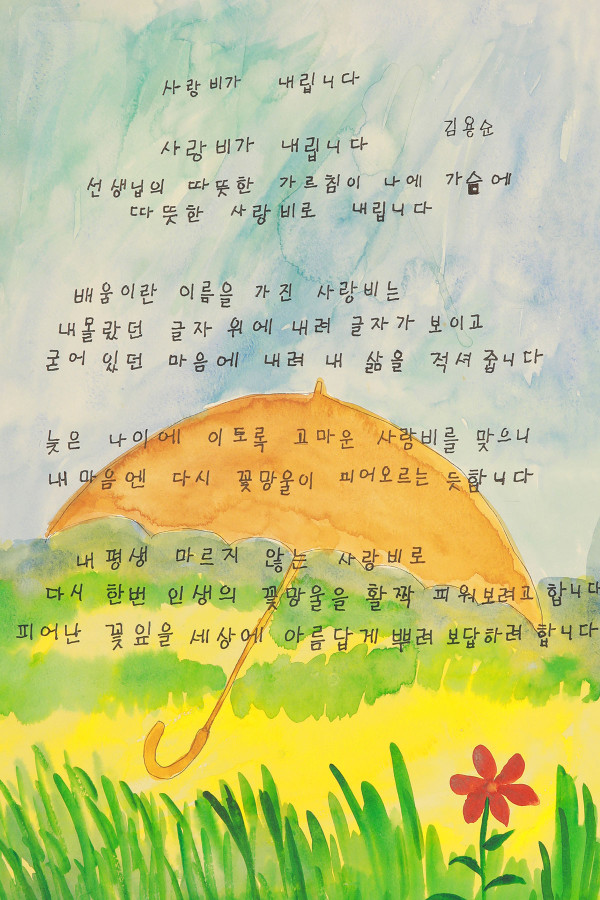 사랑비가 내립니다
김용순
사랑비가 내립니다
선생님의 따뜻한 가르침이 나에 가슴에
따뜻한 사랑비로 내립니다
배움이란 이름을 가진 사랑비는
내몰랐던 글자 위에 내려 글자가 보이고
굳어 있던 마음에 내려 내 삶을 적셔줍니다
늦은 나이에 이토록 고마운 사랑비를 맞으니
내마음엔 다시 꽃망울이 피어오르는 듯합니다
내 평생 마르지 않는 사랑비로
다시 한번 인생의 꽃망울을 활짝 피워보려고 합니다
피어난 꽃잎을 세상에 아름답게 뿌려 보답하려 합니다